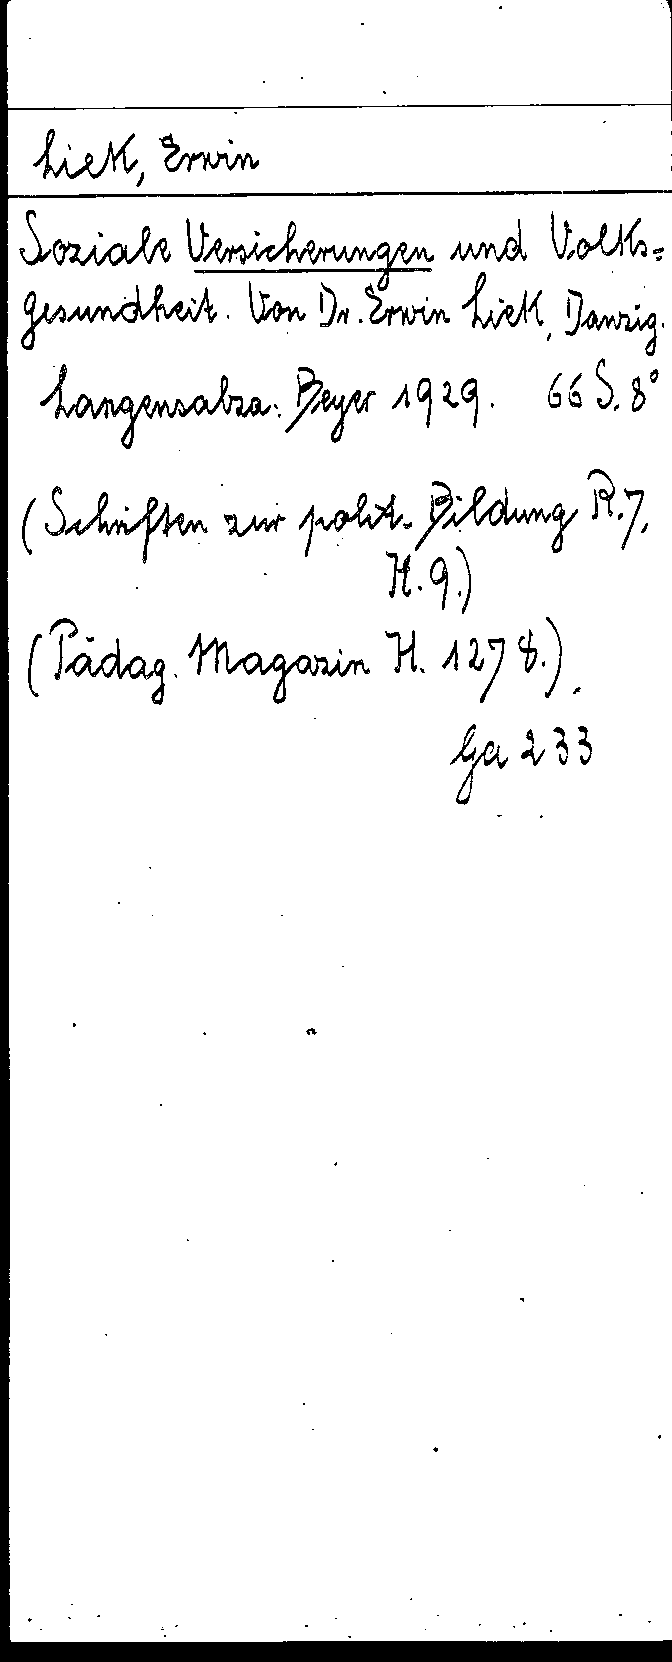 Liek, Erwin
Soziale Versicherungen und Volks=
gesundheit. Von Dr. Erwin Liek, Danzig.
Langensalza: Beyer 1929. 66 S. 8°
(Schriften zur polit. Bildung R. 7,
H. 9.)
(Pädag. Magazin H. 1278.)
Ga 233